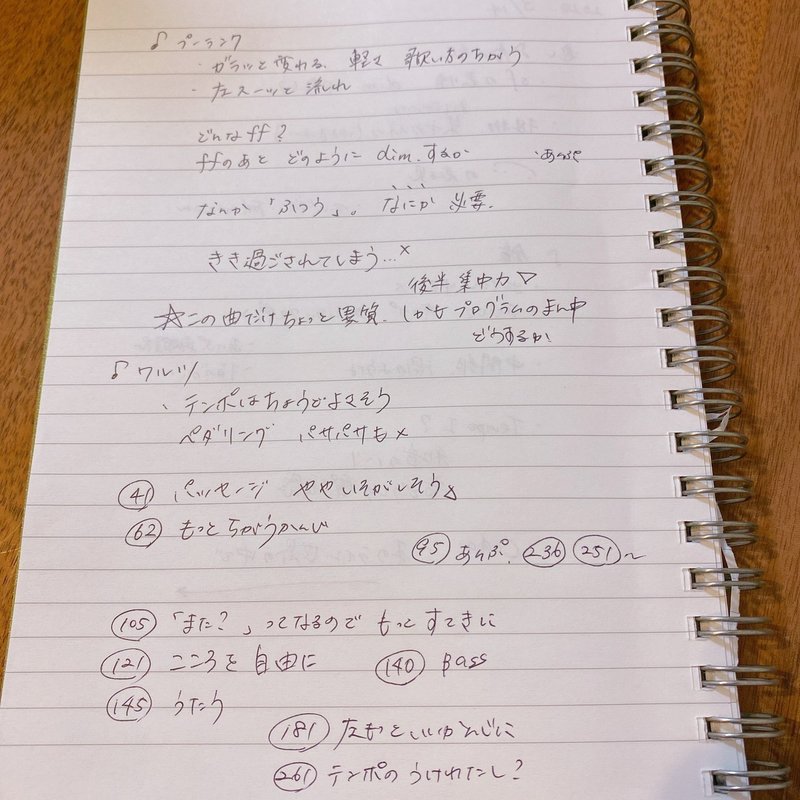 ♪ プーランク
・ガラッと変わる、軽く 歌い方のちがう
・左スーッと流れ
どんなff?
ffのあと どのように dim.するか ・あんぷ
なんか「ふつう」。なにか 必要。
きき過ごされてしまう…×
後半 集中力▽
☆この曲だけちょっと異質. しかもプログラムのまん中
どうするか
♪ ワルツ
・テンポはちょうどよさそう
ペダリング パサパサも×
㊶ パッセージ やや いそがしそう△
62 もっと ちがうかんじ
95 あんぷ. 236 251〜
105 「また?」ってなるので もっと すてきに
121 こころを 自由に 140 Bass
145 うたう
181 左もっといいかんじに
261 テンポの うけわたし?